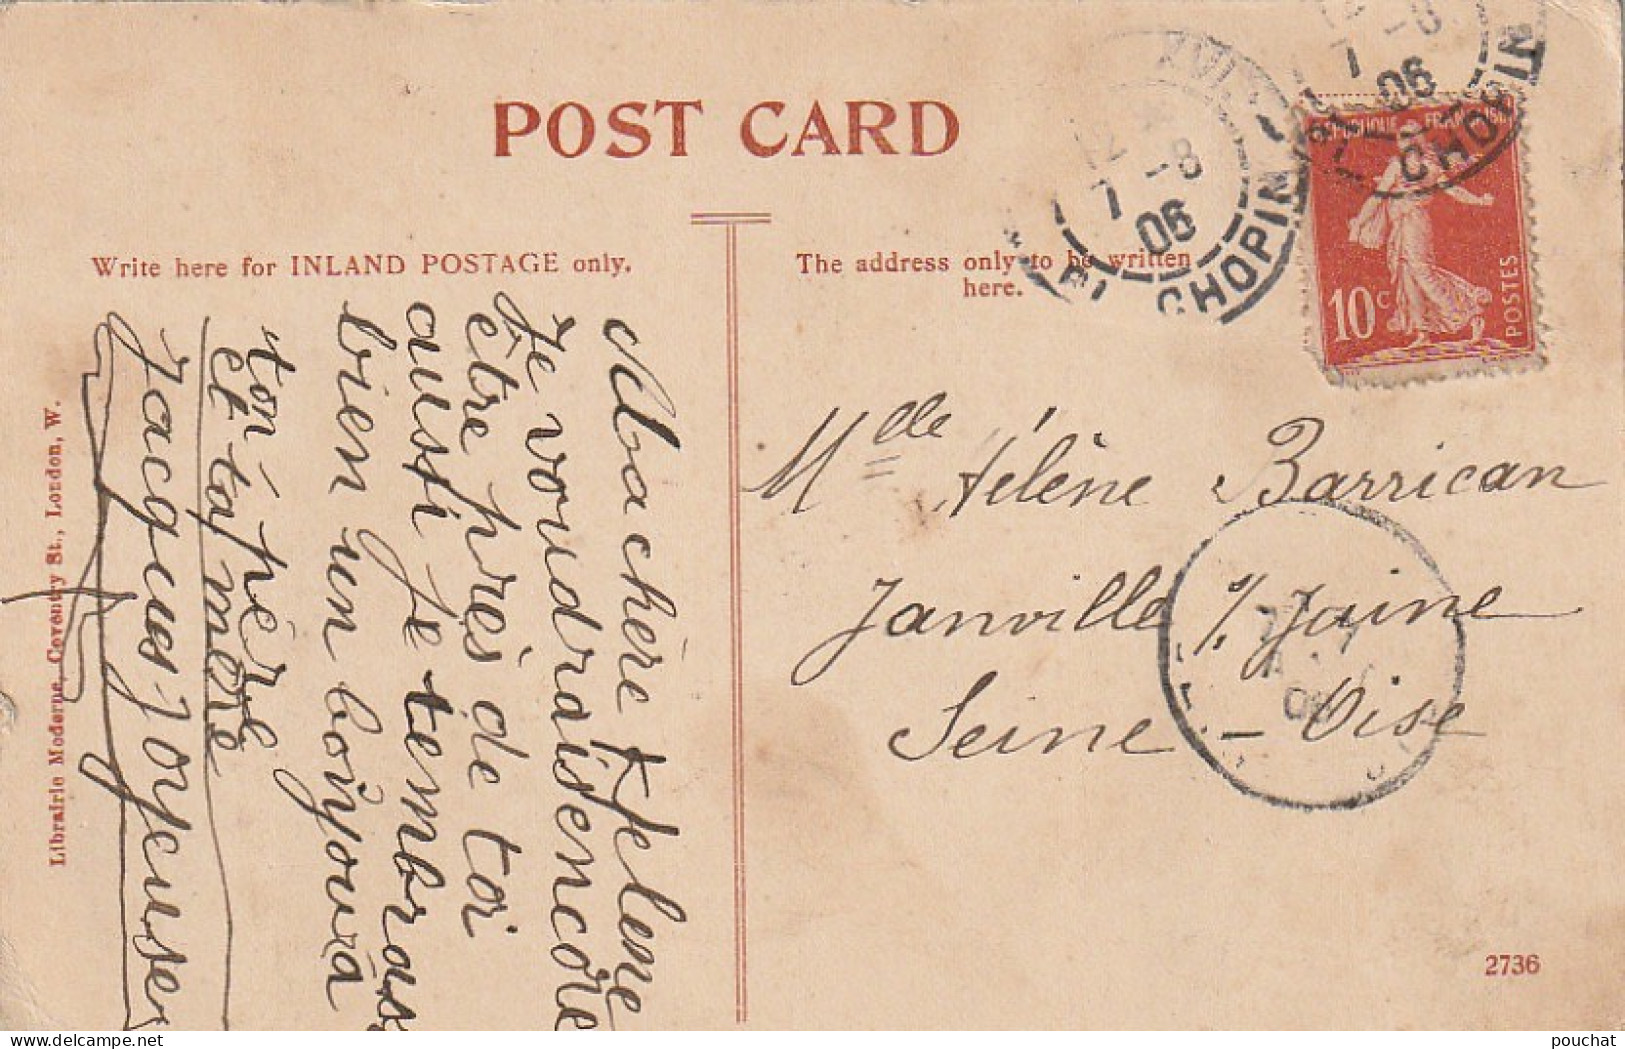 POST CARD
Write here for INLAND POSTAGE only.
The address only to be written
here.
Ma chère Helene
Je voudrais encore
être près de toi
aussi je tembrasse
bien un bonjour à
ton père
et ta mère
Jacques Joyeuse
Mlle Hélène Barrican
Janville s/ Juine
Seine-Oise
7 -8
06
CHOPIN
7 -8
06
CHOPIN
REPUBLIQUE FRANÇAISE
10c
POSTES
Librairie Moderne, Coventry St., London, W.
2736
pouchat